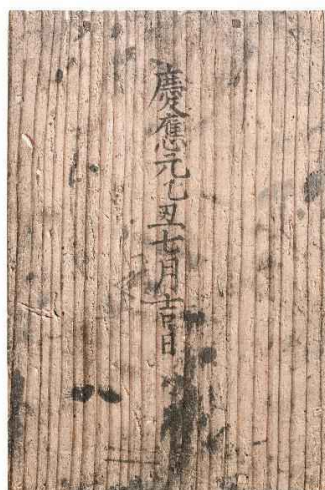 慶應元乙丑七月吉日